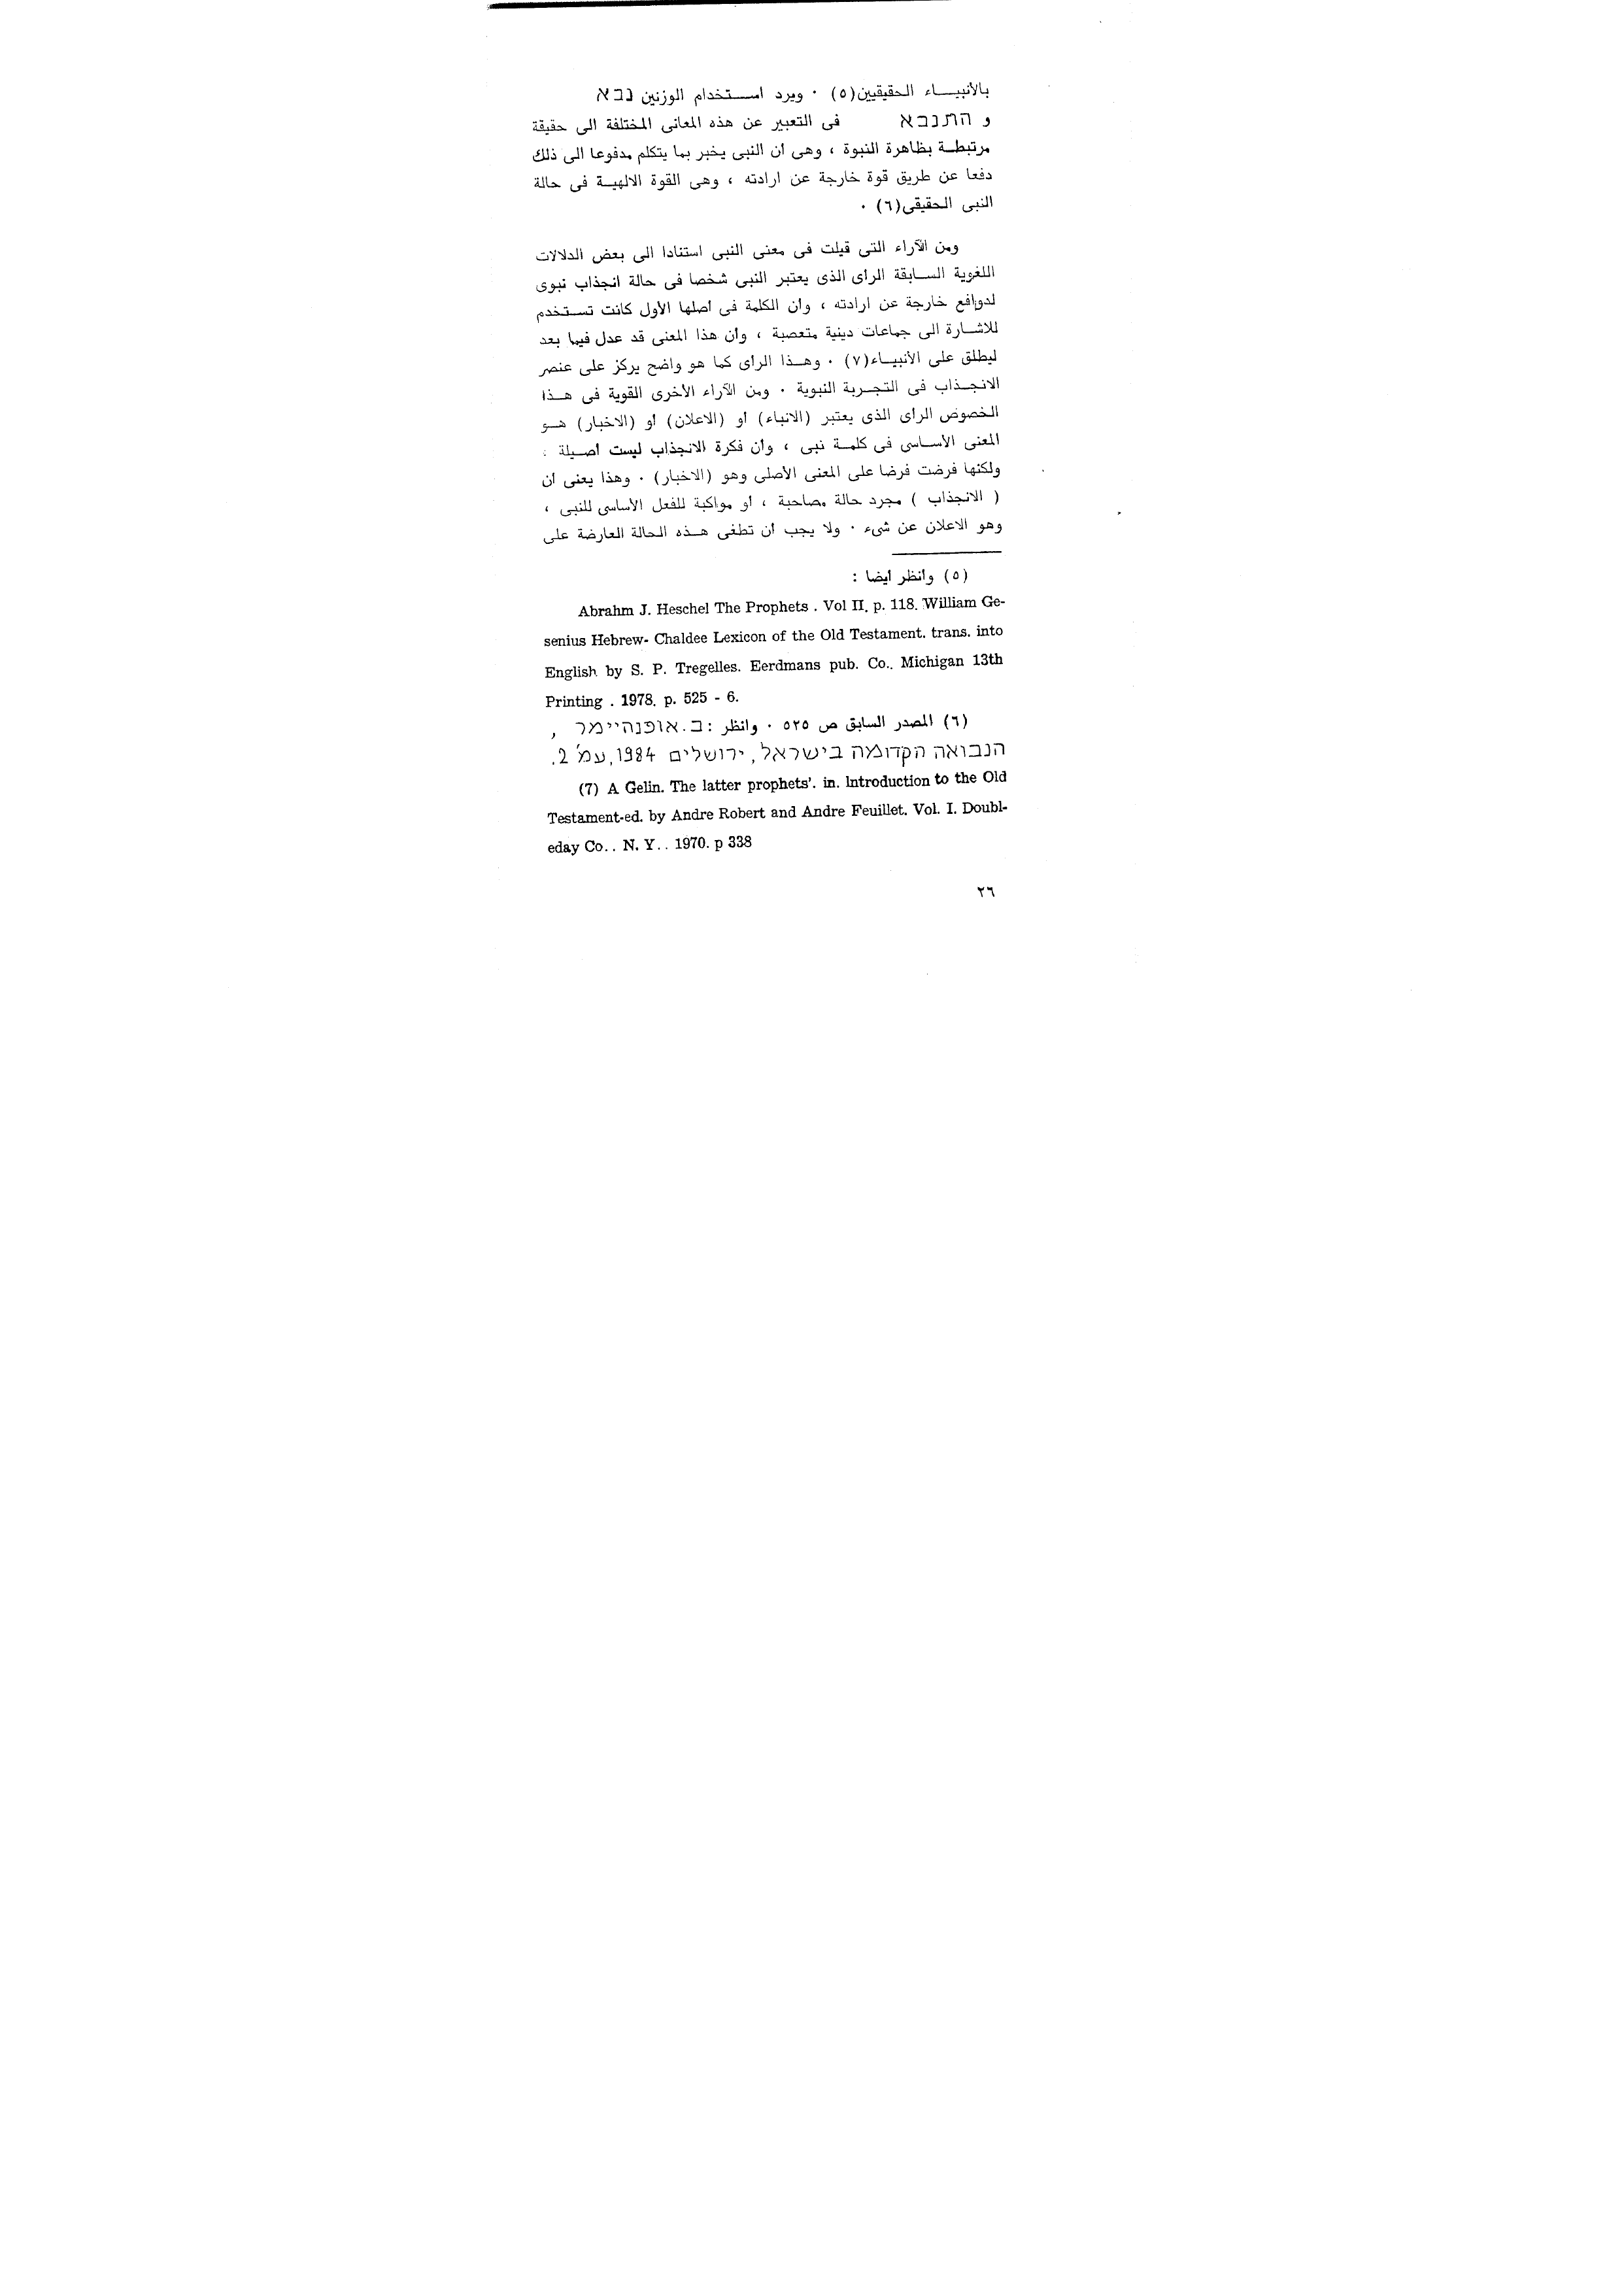 بالأنبياء الحقيقيين(٥) ٠ ويرد استخدام الوزنين נבא
و התנבא فى التعبير عن هذه المعانى المختلفة الى حقيقة
مرتبطة بظاهرة النبوة ، وهى ان النبى يخبر بما يتكلم مدفوعا الى ذلك
دفعا عن طريق قوة خارجة عن ارادته ، وهى القوة الالهية فى حالة
النبى الحقيقى(٦) ٠
ومن الآراء التى قيلت فى معنى النبى استنادا الى بعض الدلالات
اللغوية السابقة الراى الذى يعتبر النبى شخصا فى حالة انجذاب نبوى
لدوافع خارجة عن ارادته ، وان الكلمة فى اصلها الأول كانت تستخدم
للاشارة الى جماعات دينية متعصبة ، وان هذا المعنى قد عدل فيما بعد
ليطلق على الأنبياء(٧) ٠ وهذا الراى كما هو واضح يركز على عنصر
الانجذاب فى التجربة النبوية ٠ ومن الآراء الأخرى القوية فى هذا
الخصوص الراى الذى يعتبر (الانباء) او (الاعلان) او (الاخبار) هو
المعنى الأساسى فى كلمة نبى ، وان فكرة الانجذاب ليست أصيلة :
ولكنها فرضت فرضا على المعنى الأصلى وهو (الاخبار) ٠ وهذا يعنى ان
( الانجذاب ) مجرد حالة مصاحبة ، او مواكبة للفعل الأساسى للنبى ،
وهو الاعلان عن شىء ٠ ولا يجب ان تطغى هذه الحالة العارضة على
(٥) وانظر ايضا :
Abrahm J. Heschel The Prophets . Vol II. p. 118. William Ge-
senius Hebrew- Chaldee Lexicon of the Old Testament. trans. into
English by S. P. Tregelles. Eerdmans pub. Co.. Michigan 13th
Printing . 1978. p. 525 - 6.
(٦) المصدر السابق ص ٥٢٥ ٠ وانظر : ב. אופנהיימר ,
הנבואה הקדומה בישראל, ירושלים 1984, עמ׳ 2.
(7) A Gelin. The latter prophets'. in. Introduction to the Old
Testament-ed. by Andre Robert and Andre Feuillet. Vol. I. Doubl-
eday Co.. N. Y.. 1970. p 338
٢٦